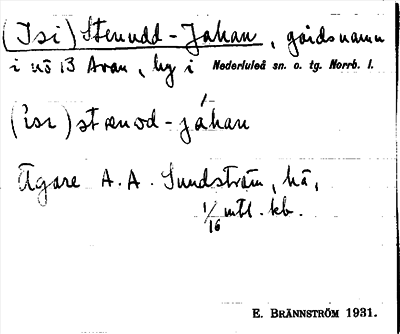 (Isi) Stenudd-Johan, gårdsnamn
i nö 13 Avan, by i Nederluleå sn. o. tg. Norrb. l.
(ísi) stænod-jóhan
Ägare A. A. Sundström, hä,
1/16 mtl. kb.
E. BRÄNNSTRÖM 1931.